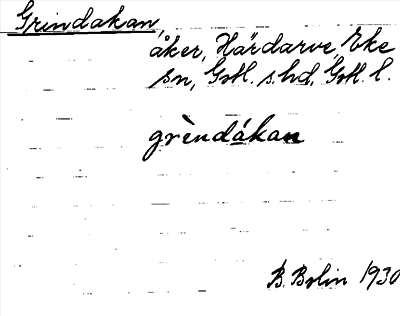 Grindakan,
åker, Härdarve, Eke
sn, Gotl. s. hd, Gotl. l.
grèndákan
B. Bolin 1930